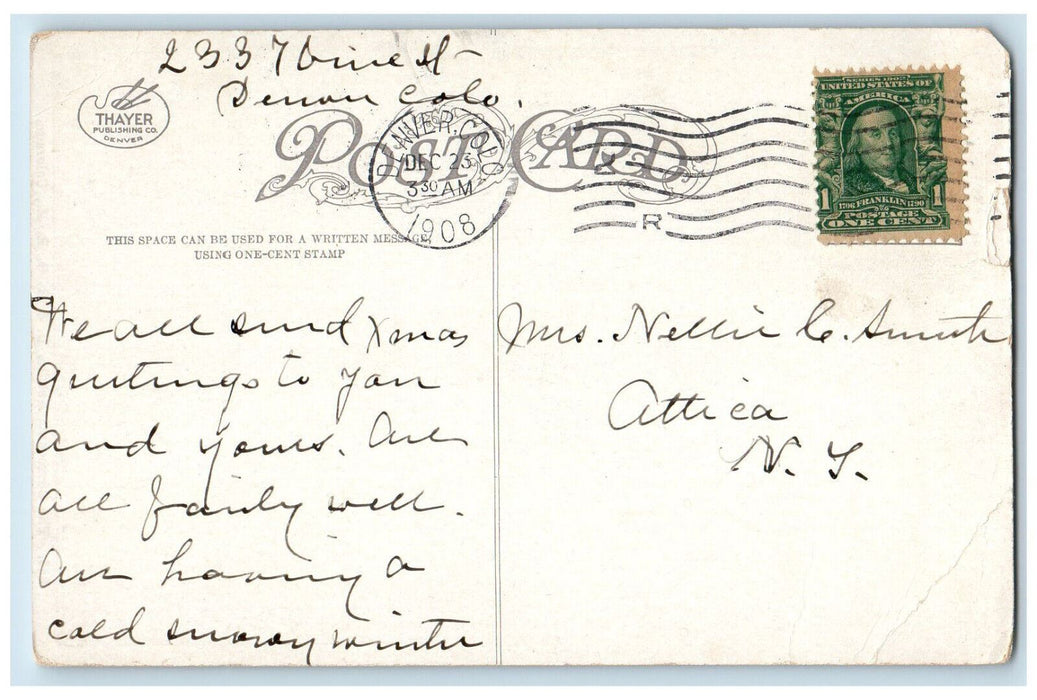 2337 Vine St
Denver Colo.
THAYER
PUBLISHING CO.
DENVER
POST CARD
DENVER, COLO
DEC 23
3 30 AM
1908
R
SERIES 1902
UNITED STATES OF
AMERICA
1 1
1706 FRANKLIN 1790
POSTAGE
ONE CENT
THIS SPACE CAN BE USED FOR A WRITTEN MESSAGE,
USING ONE-CENT STAMP
We all send Xmas
greetings to you
and yours. Are
all fairly well.
Are having a
cold snowy winter
Mrs. Nellie C. Smith
Attica
N. Y.